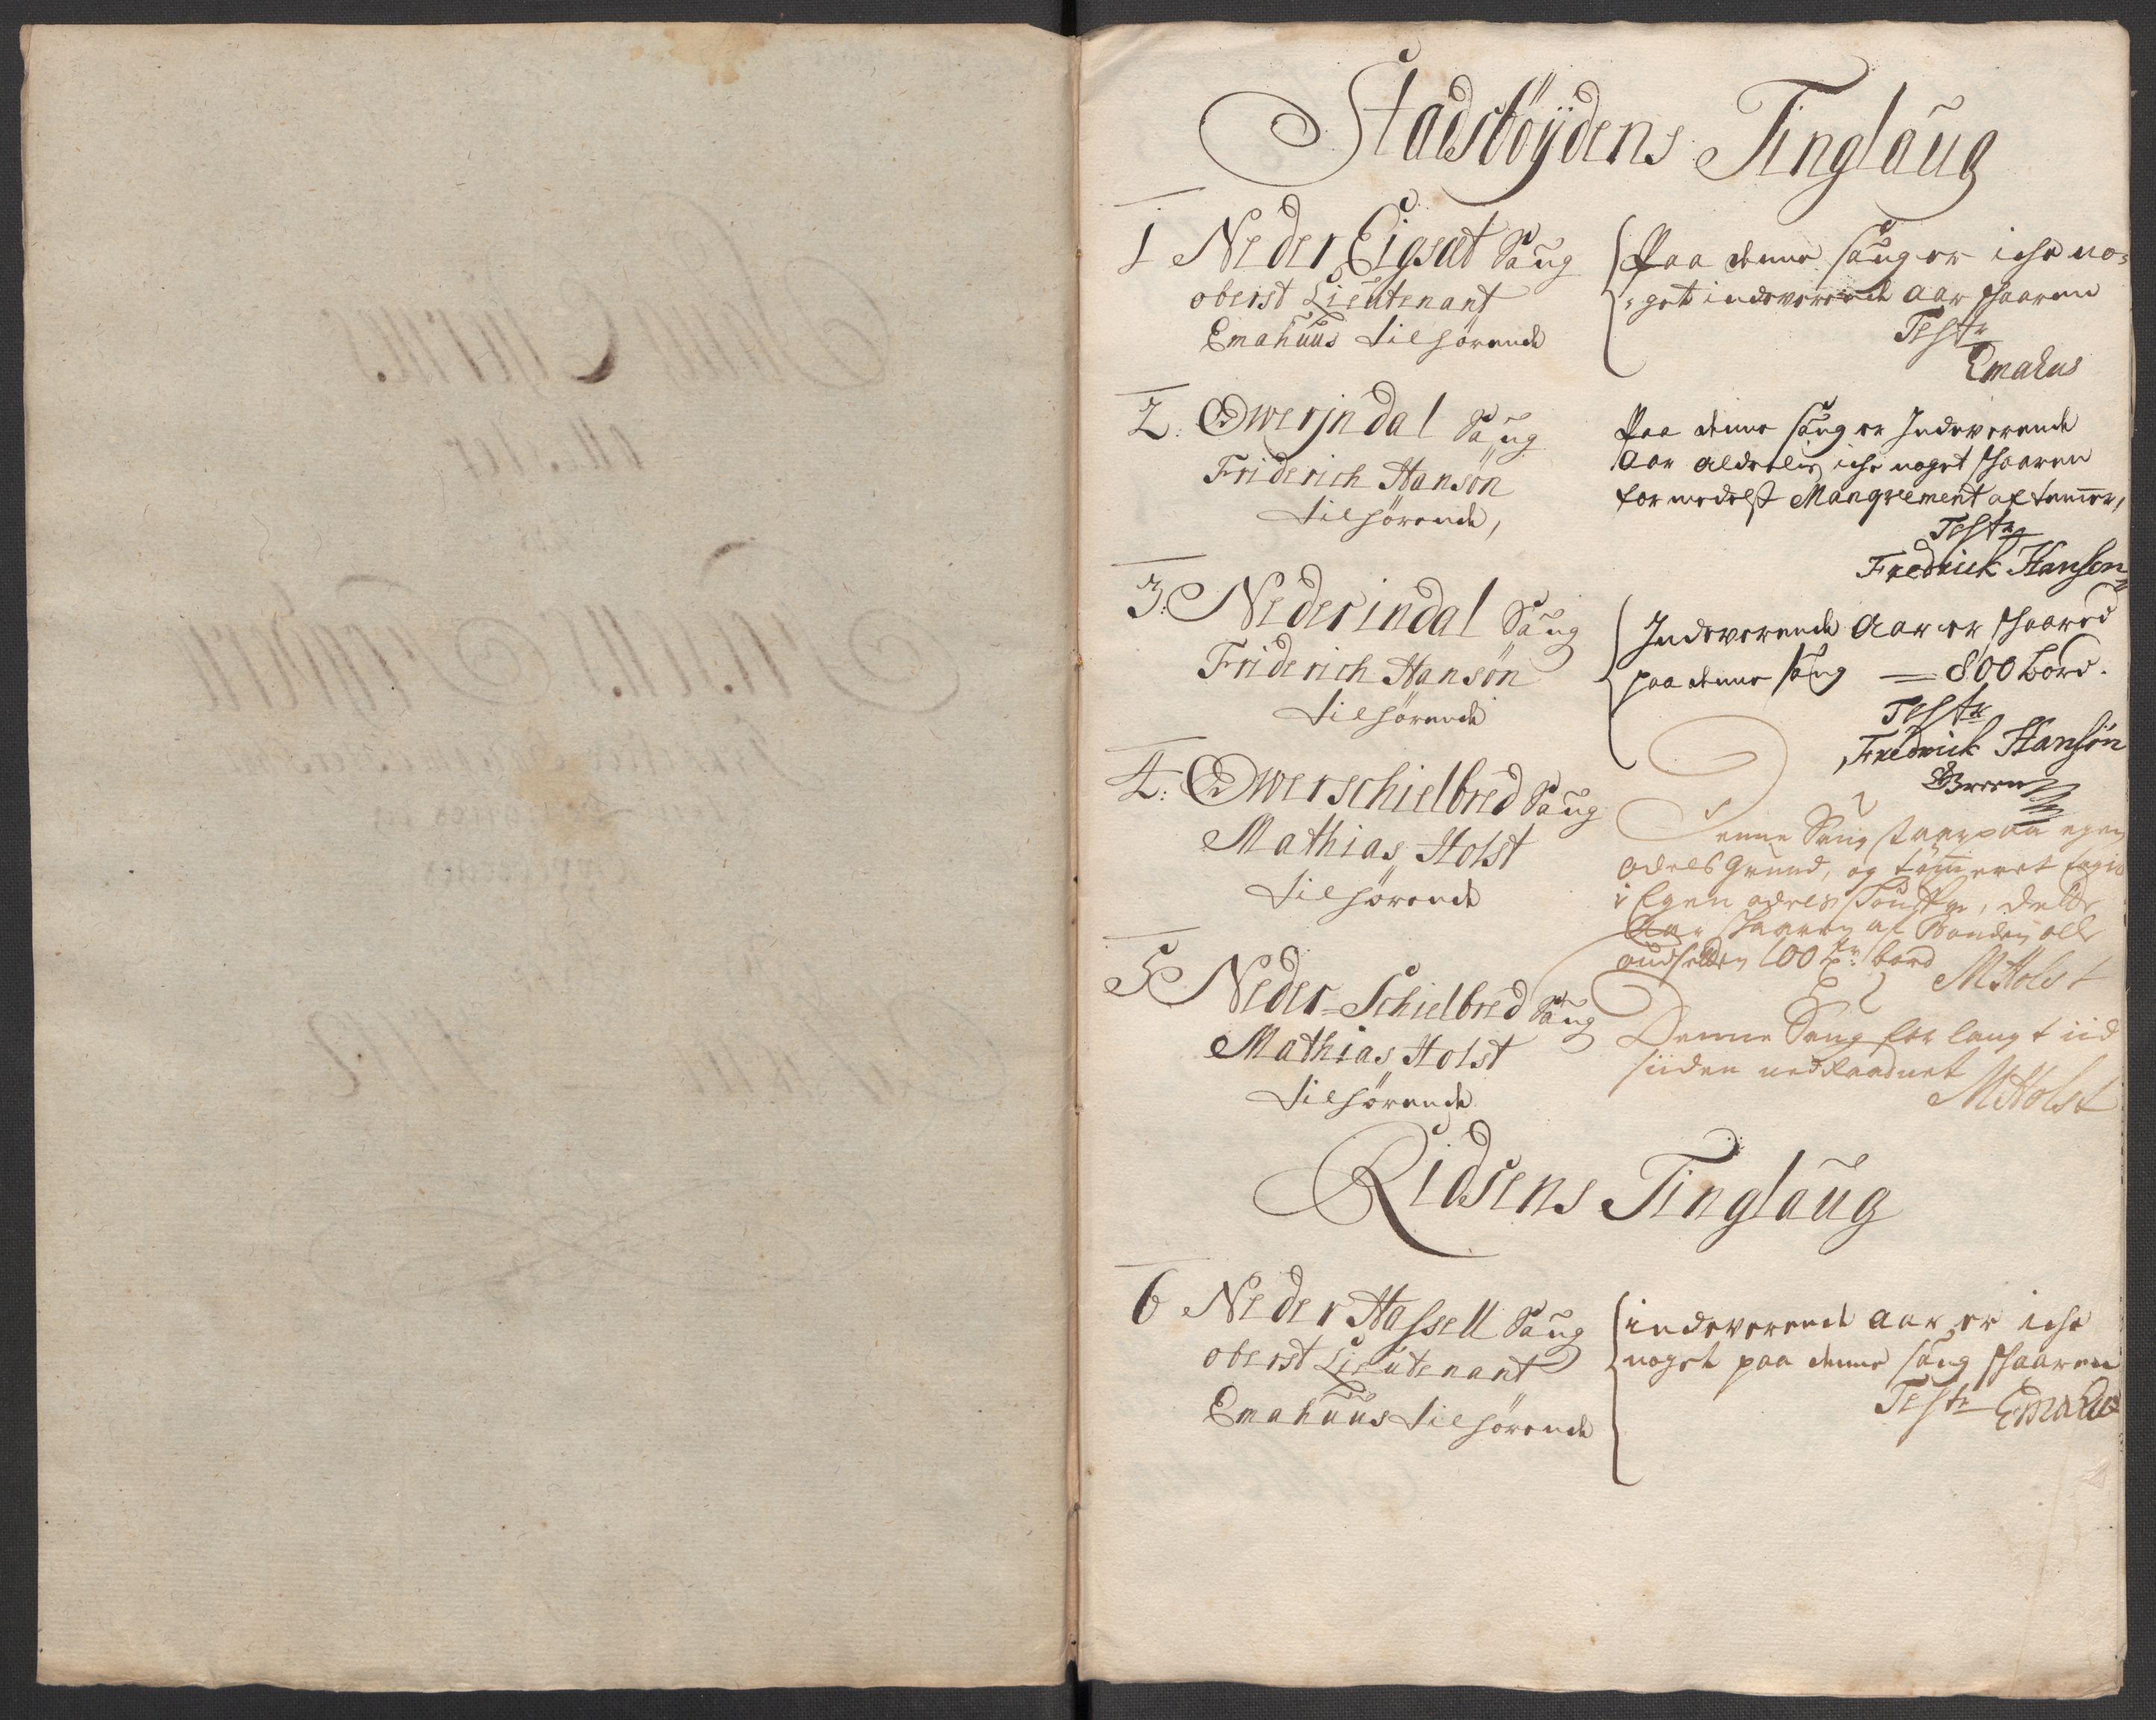 Stadsbøÿdens Tinglaug
1 Neder Eigsæt Saug
oberst Lieutenant
Emahuus tilhørende
Paa denne saug er iche no-
-get indeverende Aar schaaren
Teste
Emahus
2: Owerjndal Saug
Friderich Hansøn
tilhørende,
Paa denne saug er Indeverende
Aar aldeelis iche noget schaaren
formedelst Manqvement af tømer,
Teste
Fredrick Hansøn
3: Nederindal Saug
Friderich Hansøn
tilhørende
Indeverende Aar er schaared
paa denne saug — 800 bord.
Teste
Fredrick Hansøn
4: Owerschielbred Saug
Mathias Holst
tilhørende
Denne Saug staar paa egen
odels Grund, og tømeret
i Egen odels, dette
Aar schaaren af Bonden
100 bord
MHolst
5 Neder-Schielbred Saug
Mathias Holst
tilhørende
Denne Saug for lang tiid
siiden nedraadnet
MHolst
Ridsens Tinglaug
6 Neder Hassell Saug
oberst Lieutenant
Emahuus tilhørende
indeverende Aar er iche
noget paa denne saug schaaren
Teste Emahus